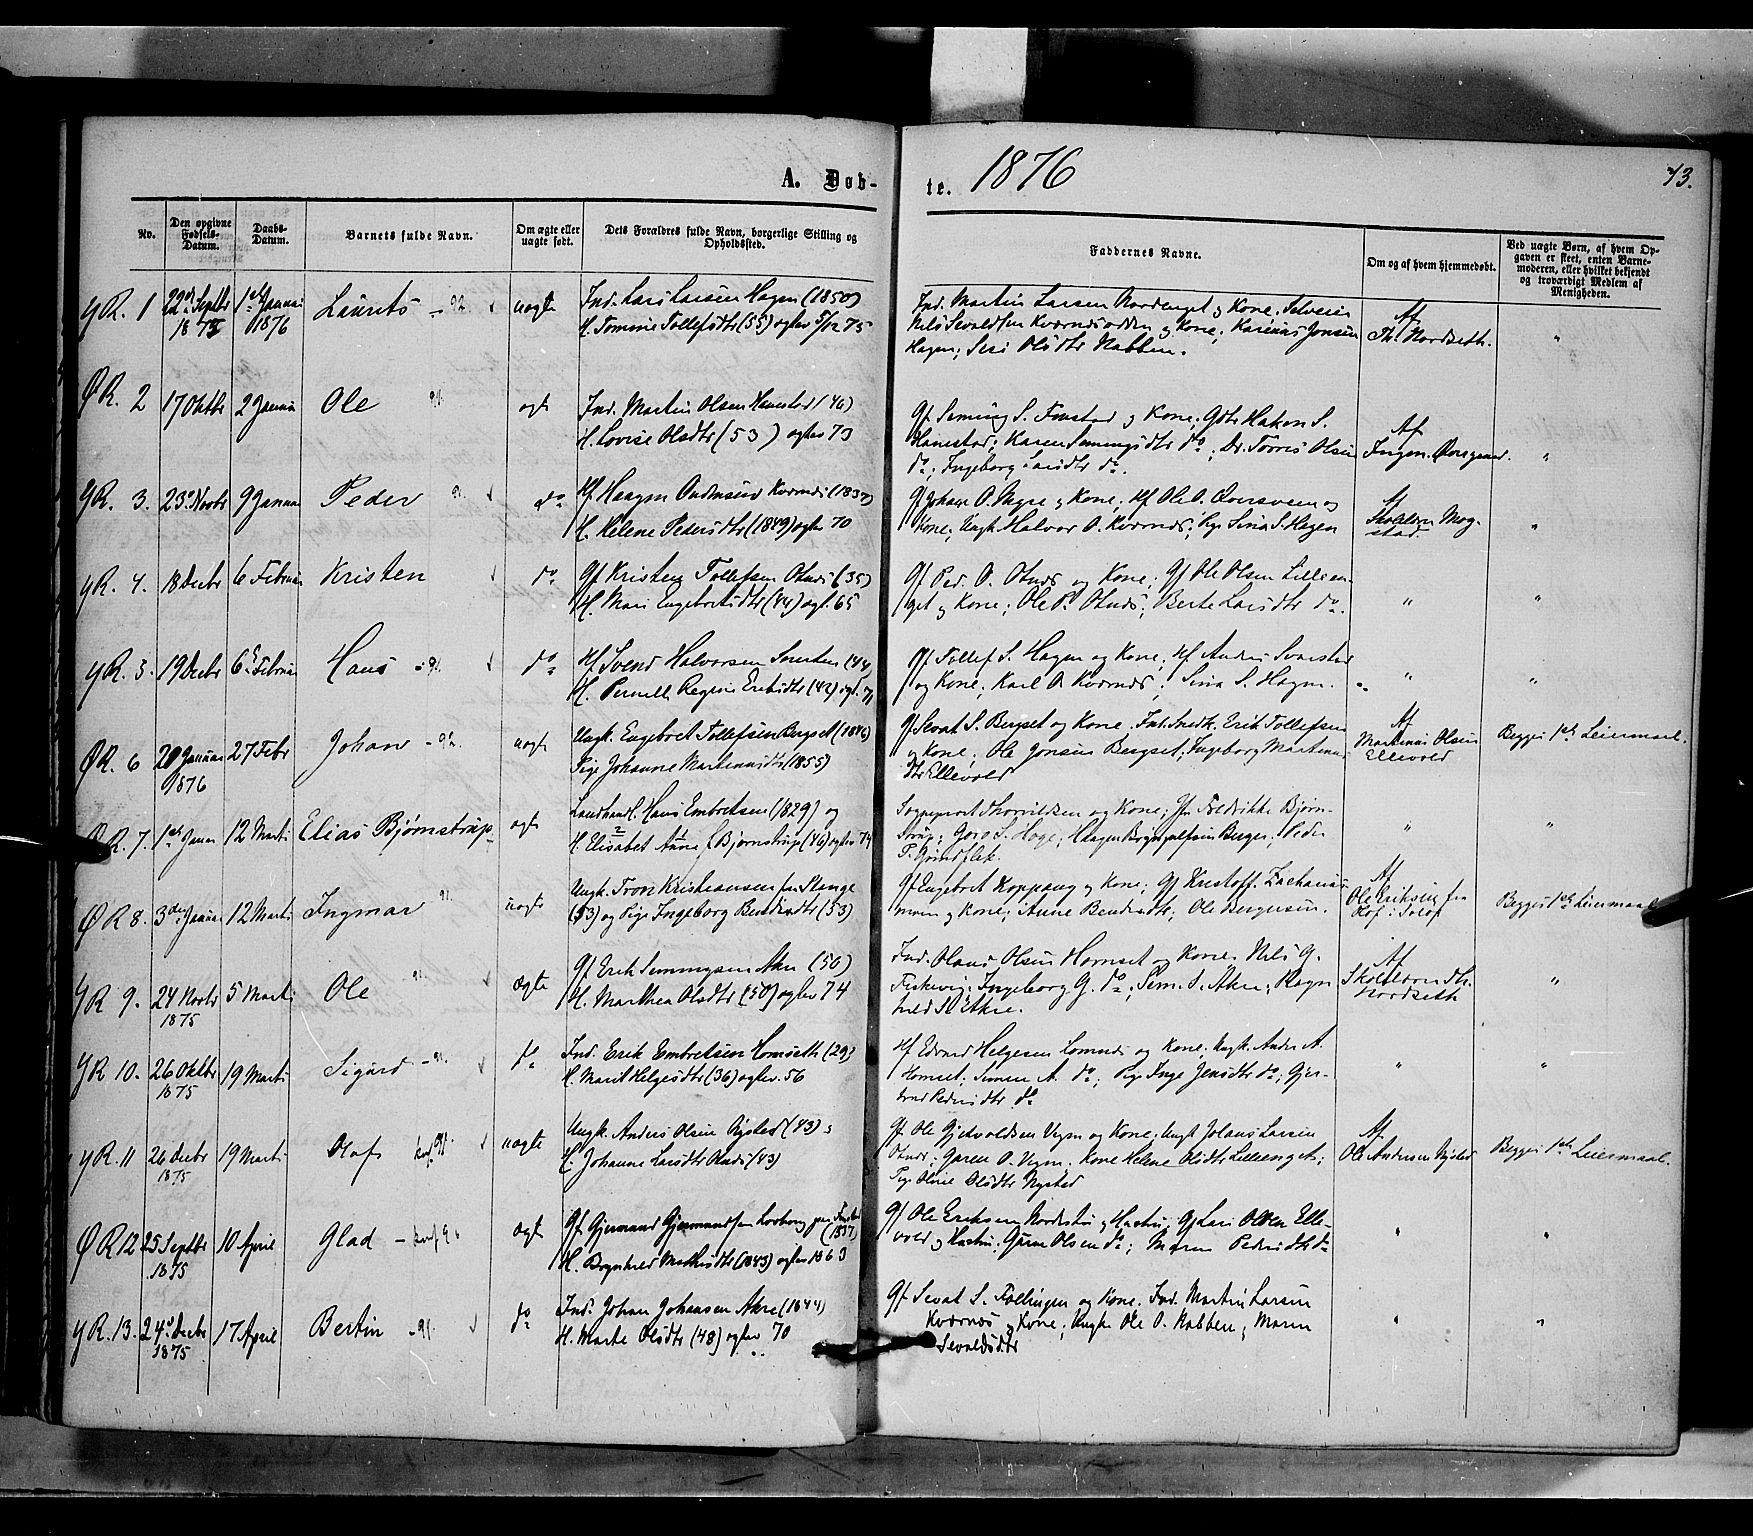 A. Døb-
te. 1876
73.
No.
Den opgivne Fødsels-Datum.
Daabs-Datum.
Barnets fulde Navn.
Om ægte eller uægte født.
Dets Forældres fulde Navn, borgerlige Stilling og Opholdssted.
Faddernes Navne.
Om og af hvem hjemmedøbt.
Ved uægte Børn, af hvem Opgaven er skeet, enten Barnemoderen, eller hvilket bekjendt og troværdigt Medlem af Menigheden.
YR. 1 22de Septbr 1875 1ste Januar 1876 Laurits uægte
Ind. Lars Larsen Hagen (1850)
H. Tomine Tollefsdtr (55) 5/12 75
Ind. Martin Larsen Nordenget og Kone,
Nils Sevaldsen Kværnesodden og Kone; Karinus Jonsen
Hagen; Siri Olsdtr Nabben.
Af Th. Nordseth. "
ØR. 2 17 Oktbr 2 Januar Ole ægte
Ind. Martin Olsen Hanestad (46)
H. Lovise Olsdtr (53) ægtev 73
Gf. Seming S. Fonstad og Kone; Hakon S.
Hanestad; Karen Semingsdtr do; Torris Olsen
do; Ingeborg Larsdtr do.
Af "
YR. 3. 23 Novbr 9 Januar Peder do
Hf Haagen Kværnes (1837)
H. Helene Pedersdtr (1849) ægtev 70
Gf Johan O. Myre og Kone; Hf Ole O. og
Kone; Ungk Halvor O. Kværnes; Pige Sina S. Hagen
Af Skolelærer Mogstad. "
YR. 4. 18 Decbr 6 Februar Kristen do
Gf Kristen Tollefsen Otnes (35)
H. Mari Engebretsdtr (44) ægt. 65
Gf Ped. O. Otnes og Kone; Gf Ole Olsen Lillien-
get og Kone; Ole P. Otnes; Berte Larsdtr do.
" "
YR. 5. 19 Decbr 6 Februar Hans do
Hf Svend Halvorsen (44)
H. Pernelle Regine (42) ægt. 71
Gf Tollef S. Hagen og Kone; Hf
og Kone; Karl O. Kværnes; Sina S. Hagen.
" "
ØR. 6 20 Januar 1876 27 Febr Johan uægte
Ungk. Engebret Tollefsen Bergset (1846)
Pige Johanne Martinusdtr (1855)
Gf Sevat S. Bergset og Kone. Ind. Snedk. Erik Tollefsen
og Kone; Ole Jonsen Bergset; Ingeborg Martinus
dtr Ellevold
Af Martinus Olsen Ellevold
Begges 1ste Leiermaal.
ØR. 7. 1ste Januar 12 Marts Elias Bjørnstrup ægte
Landhandl. Hans Embretsen (1829) og
H. Elisabet Anne f. Bjørnstrup (46) ægtev 74
Sogneprest Thorvildsen og Kone; Fr Fredrikke Bjørn-
strup; Goro S. Hoge; Haagen Berger; Peder
P. Grindflek.
" "
ØR 8. 3die Januar 12 Marts Ingmar uægte
Ungk. Tron Kristiansen fra Stange
(53) og Pige Ingeborg Bendiksdtr (53)
Gf Engebret Koppang og Kone; Gf Kristoff. Zacharias-
sen og Kone; Anne Bendiksdtr; Ole Bergersen.
Af Ole Eriksen fra Hof i Solør
Begges 1ste Leiermaal
YR 9. 24 Novbr 1875 5 Marts Ole ægte
Gf Erik Semmingsen Akre (50)
H. Marthea Olsdtr (50) ægtev 74
Ind. Olaus Olsen Hornset og Kone. Nils G.
Fiskevig; Ingeborg G. do; Sem. S. Akre; Ragn
hild S. Akre.
Af Skolelærer Th. Nordseth "
YR 10. 26 Oktbr 1875 19 Marts Sigurd do
Ind. Erik Embretsen Hornseth (29)
H. Marit Helgesdtr (36) ægtev. 56
Hf Edvard Helgesen Lomnes og Kone. Ungk. Anders A.
Hornset; Simen A. do; Pige Inge Jensdtr do; Gjer-
trud Pedersdtr do
" "
YR. 11 26 Decbr 1875 19 Marts Olaf uægte
Ungk. Anders Olsen Nysted (43)
Johanne Larsdtr Otnes (43)
Gf. Ole Gjetvoldsen og Kone; Ungk Johans Larsen
Otnes; Kone Helene Olsdtr Lillienget;
Pige Oline Olsdtr Nysted
Af Ole Andersen Nysted
Begges 1ste Leiermaal.
ØR 12 25 Septbr 1875 10 April Glad ægte
Gf. Gjermund Gjermundsen (1837)
H. Ragnhild (1843) ægtev 1863
Gf Ole Eriksen og Hustru; Gf Lars Olsen Elle-
vold og Hustru; Olsen do; Maren Pedersdtr do
" "
YR. 13. 24 Decbr 1875 17 April Bertin do
Ind. Johan Johansen Akre (1844)
H. Marte Olsdtr (48) ægtev 70
Gf Sevat S. Føllingen og Kone. Ind. Martin Larsen
Kværnes og Kone; Ungk. Ole O. Nabben; Maren
Sevaldsdtr
" "